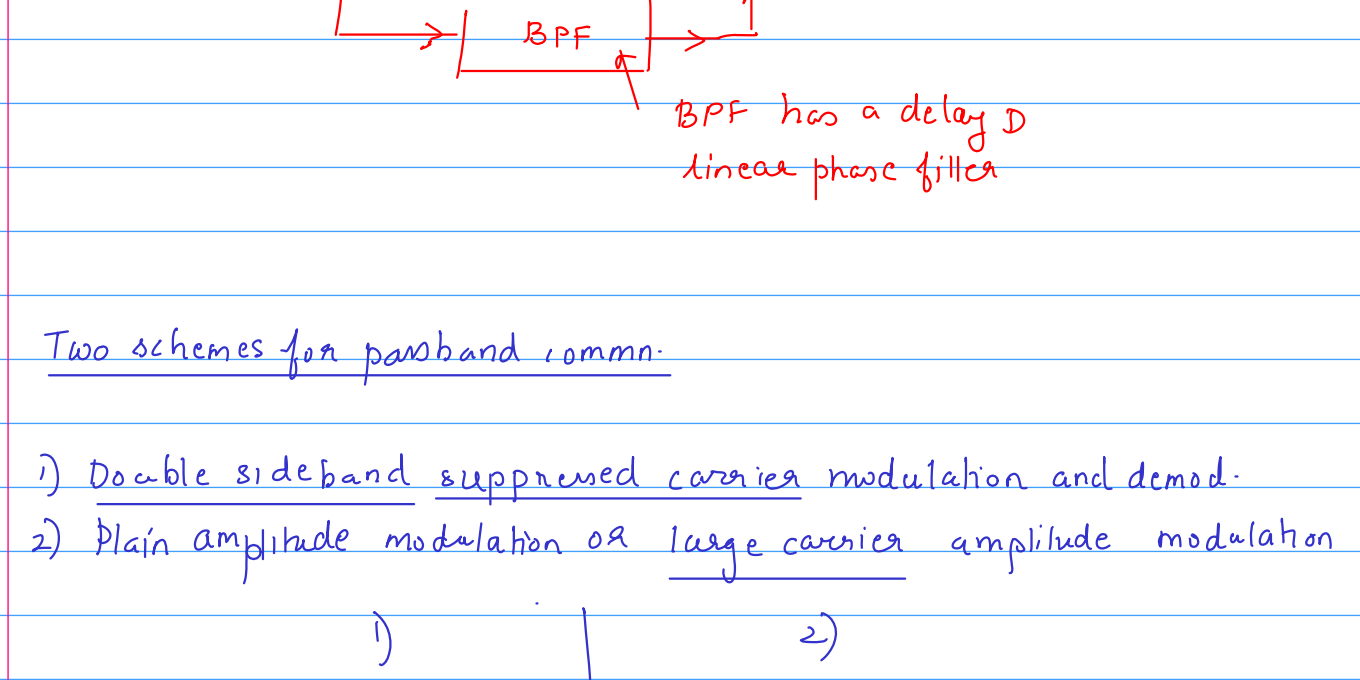 BPF
BPF has a delay D
linear phase filter
Two schemes for passband commn.
1) Double sideband suppressed carrier modulation and demod.
2) Plain amplitude modulation or large carrier amplitude modulation
1) 2)